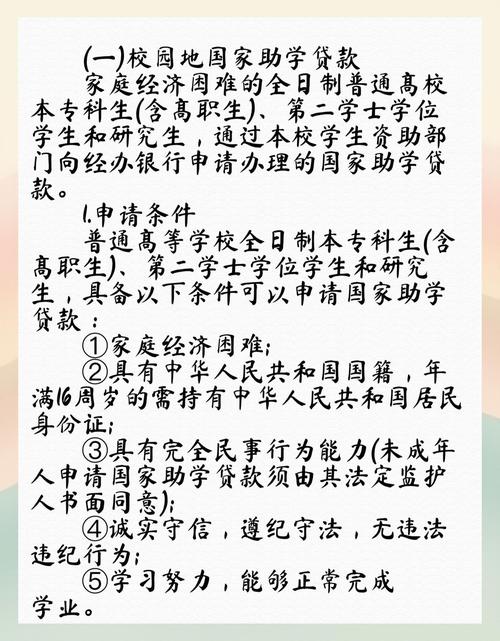 (一)校园地国家助学贷款
家庭经济困难的全日制普通高校
本专科生(含高职生)、第二学士学位
学生和研究生，通过本校学生资助部
门向经办银行申请办理的国家助学贷
款。
1.申请条件
普通高等学校全日制本专科生(含
高职生)、第二学士学位学生和研究
生，具备以下条件可以申请国家助学
贷款：
①家庭经济困难;
②具有中华人民共和国国籍，年
满16周岁的需持有中华人民共和国居民
身份证;
③具有完全民事行为能力(未成年
人申请国家助学贷款须由其法定监护
人书面同意);
④诚实守信，遵纪守法，无违法
违纪行为;
⑤学习努力，能够正常完成
学业。